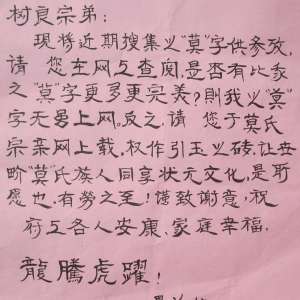 树良宗弟:
現将近期搜集义"莫"字供参攷,
请 您在网上查阅,是否有比家
之"莫"字更多更完美?則我义"莫"
字无昷上网。反之,请 您于莫氏
宗亲网上载,权作引玉义砖,让
"莫"氏族人同享状元文化,是所
感也,有勞之至!谨致谢意,祝
府上各人安康、家庭幸福,
龍騰虎躍!